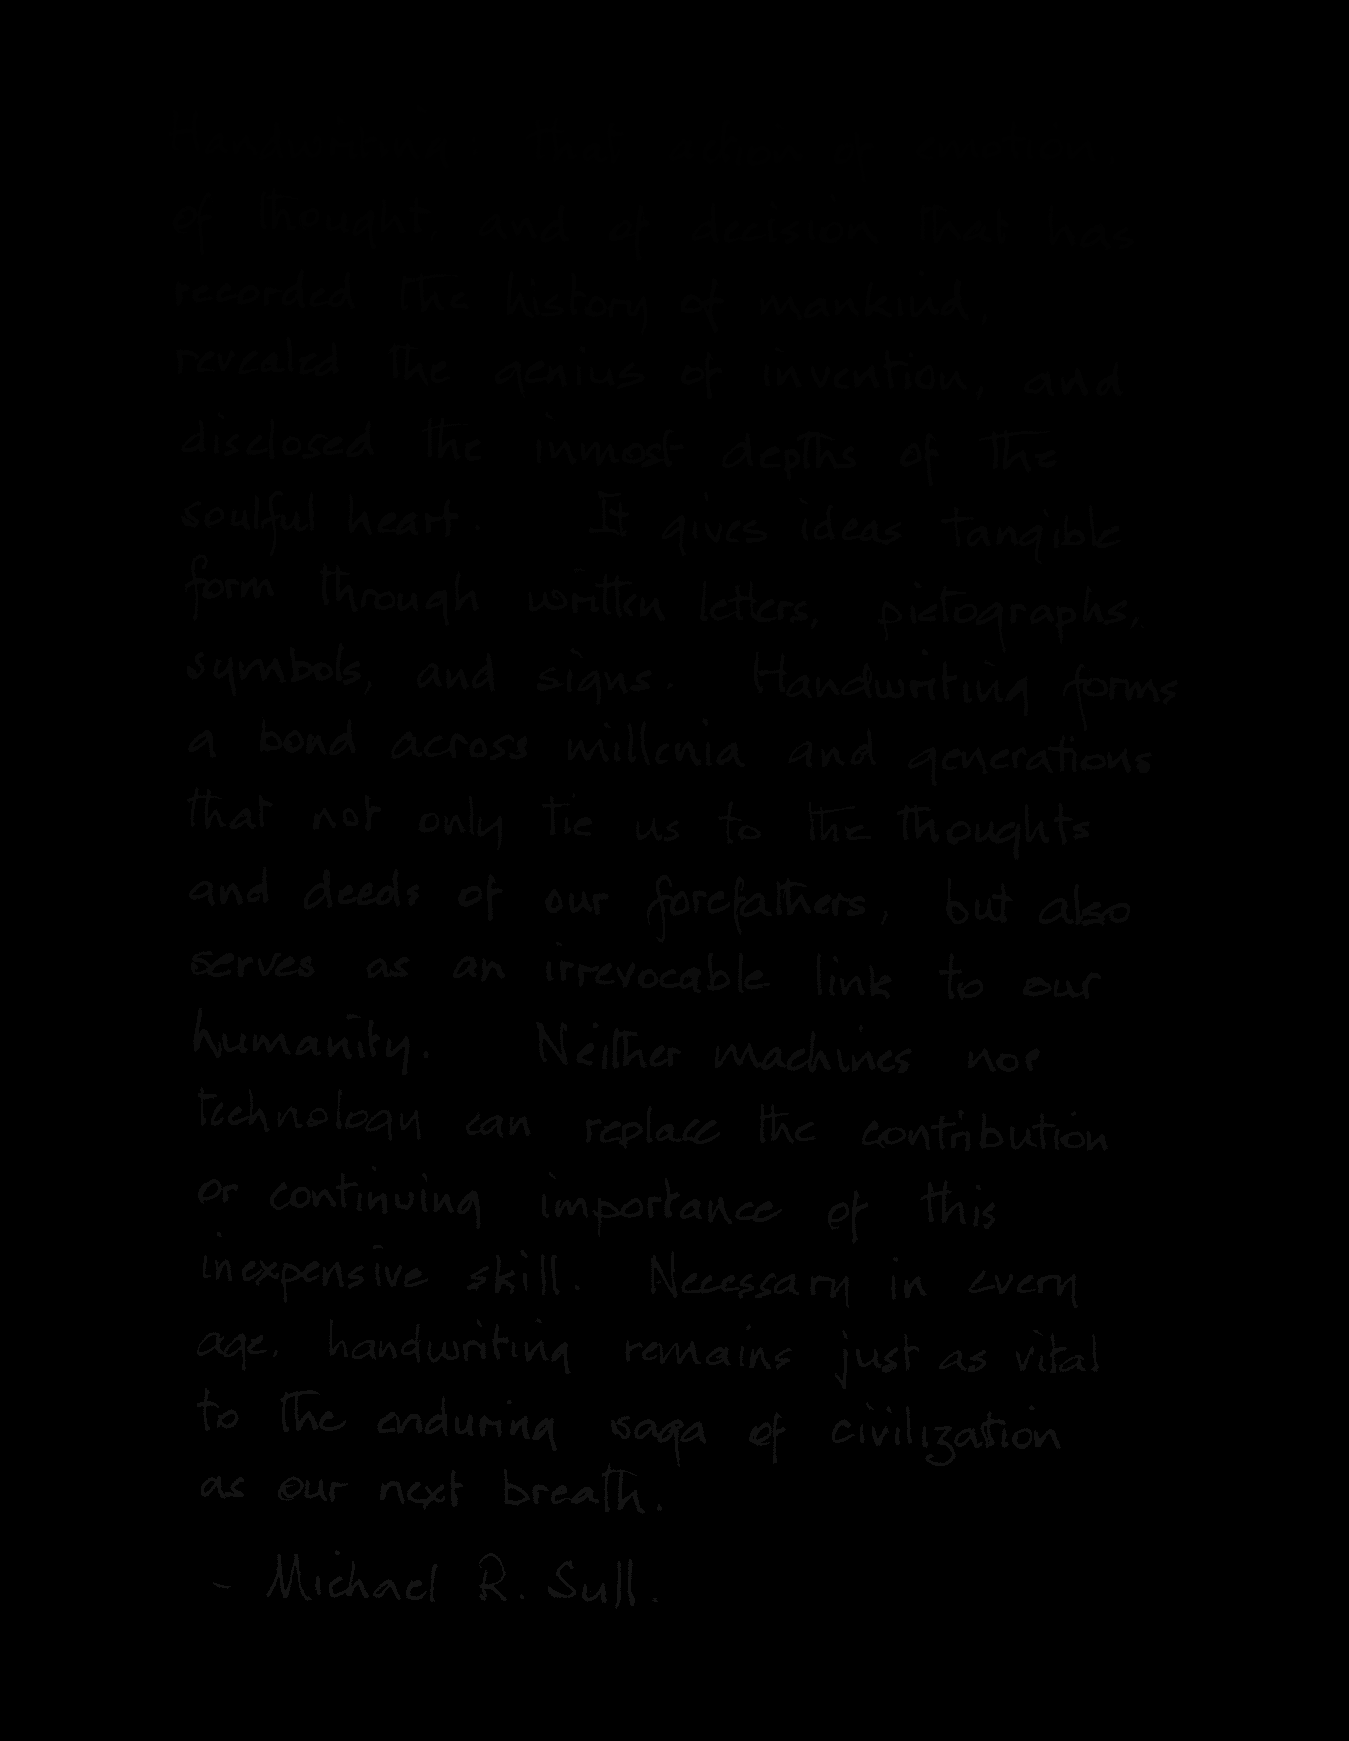 of thought, and of decision that has
recorded the history of mankind,
revealed the genius of invention, and
disclosed the inmost depths of the
soulful heart. It gives ideas tangible
form through written letters, pictographs,
symbols, and signs. Handwriting forms
a bond across millenia and generations
that not only tie us to the thoughts
and deeds of our forefathers, but also
serves as an irrevocable link to our
humanity. Neither machines nor
technology can replace the contribution
or continuing importance of this
inexpensive skill. Necessary in every
age, handwriting remains just as vital
to the enduring saga of civilization
as our next breath.
- Michael R. Sull.